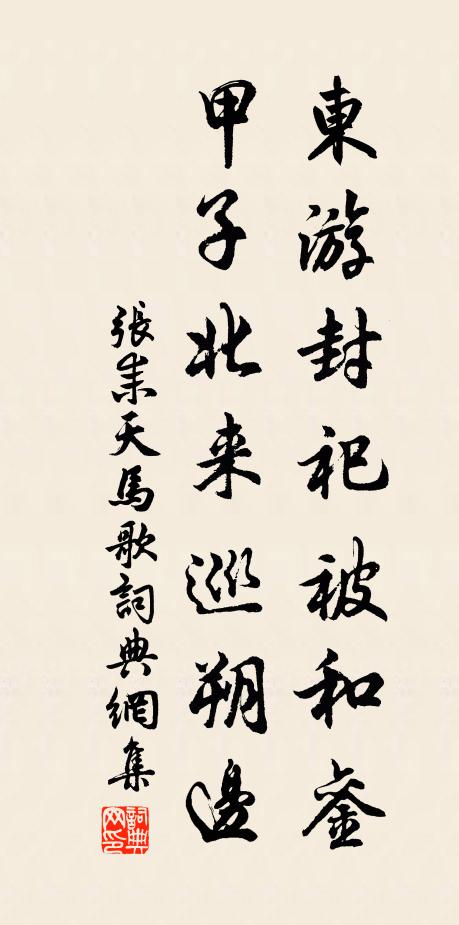 東游封祀被和銮
甲子北来巡朔邊
張耒天馬歌詞典網集
詞典网印